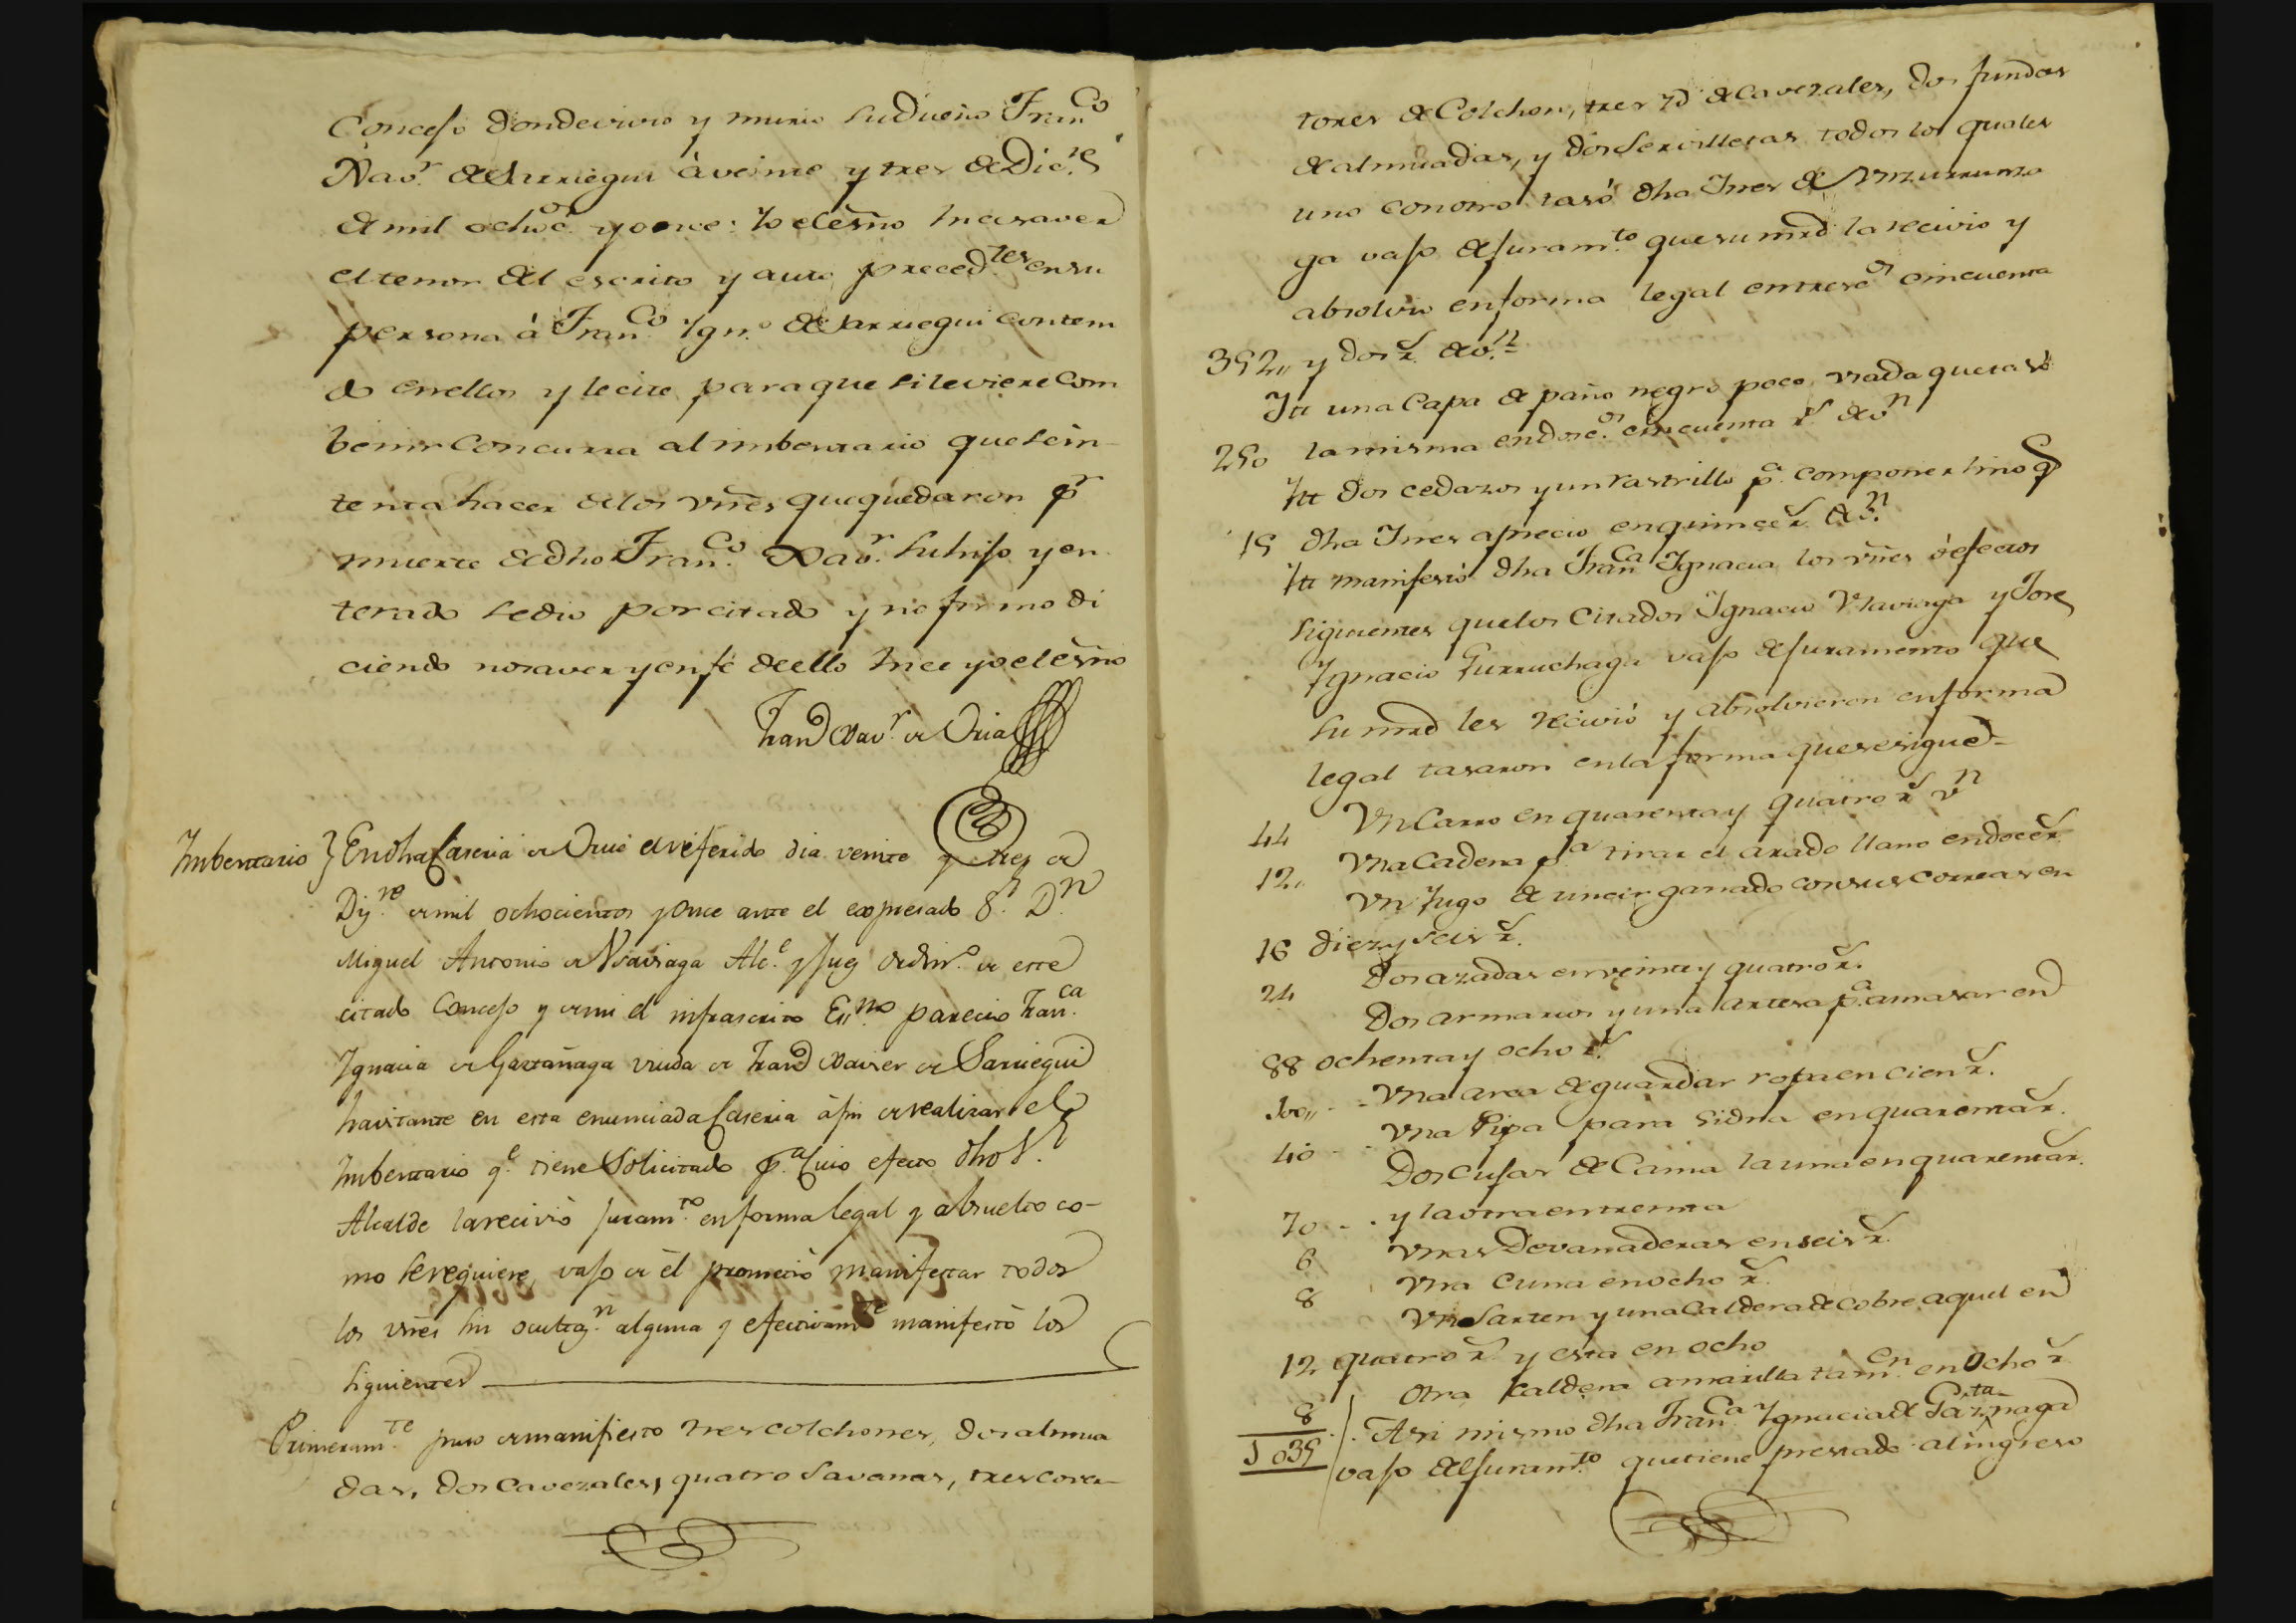 Concejo donde vivio y murio su dueño Fran.co
Xav.r de Sarriegui à veinte y tres de Dic.re
de mil ochoc.os y once: Yo el esño hice saver
el tenor del escrito y auto preced.tes en su
persona à Fran.co Ygn.o de Sarriegui conteni
do en ellos y le cite para que si le viere com
benir concurra al imbentario que se in-
tenta hacer de los vñes que quedaron p.r
muerte de dho Fran.co Xav.r su hijo y en
terado se dio por citado y no firmo di
ciendo no saver y en fé de ello hice yo el esño
Fran.co Xav.r de Oria
Imbentario } En dha Caseria de el referido dia veinte y tres de
Diz.re de mil ochocientos y once ante el expresado S.r D.n
Miguel Antonio de Usaviaga Alc.e y Juez ordin.o de este
citado Concejo y de mi el infrascrito Es.no parecio Fran.ca
Ygnacia de Gaztañaga viuda de Fran.co Xavier de Sarriegui
havitante en esta enunciada Caseria à fin de realizar el
Imbentario q.e tiene Solicitado p.a Cuio efecto dho S.r
Alcalde la recivió juram.to en forma legal y absuelto co-
mo se requiere, vajo de èl prometió manifestar todos
los vñes sin ocultaz.n alguna y efectivam.te manifestò los
siguientes
Primeram.te puso de manifiesto tres colchones, dos almua
das, dos cavezales, quatro savanas, tres cover-
tores de Colchon, tres yd. de Cavezales, dos fundas
de almuadas, y dos servilletas todos los quales
uno con otro tasó dha Ynes de Vnzurrunza
ga vajo de juram.to que su mrd la recivio y
absolvio en forma legal en tresc.os cincuenta
352,, y dos r.s de v.n
Ytt una Capa de paño negro poco vsada que tasó
250 la misma en dosc.os cincuenta r.s de v.n
Ytt dos cedazos y un rastrillo p.a componer lino q.e
15 dha Ynes aprecio en quince r.s de v.n
Ytt manifestó dha Fran.ca Ygnacia los vñes ó efectos
siguientes que los citados Ygnacio Vsaviaga y Jose
Ygnacio Yurruchaga vajo de juramento que
su mrd les recivió y absolvieron en forma
legal tasaron en la forma que se sigue-
44 Vn Carro en quarenta y quatro r.s v.n
12,, Vna Cadena p.a tirar el arado llano en doce r.s
Vn Jugo de uncir ganado con sus correas en
16 diez y seis r.s
24 Dos azadas en veinte y quatro r.s
Dos armarios y una artesa p.a amasar en
88 ochenta y ocho r.s
100,, - - Vna arca de guardar ropa en cien r.s
40 - - Vna Pipa para sidra en quarenta r.s
Dos cujas de Cama la una en quarenta r.s
70 - - . y la otra en treinta
6 Vnas Devanaderas en seis r.s
8 Vna cuna en ocho r.s
Vn Sarten y una Caldera de cobre aquel en
12 quatro r.s y esta en ocho
8 Otra Caldera amarilla tam.en en ocho r.s
1 035 Asi mismo dha Fran.ca Ygnacia de Gaztañaga
vajo del juram.to que tiene prestado al ingreso